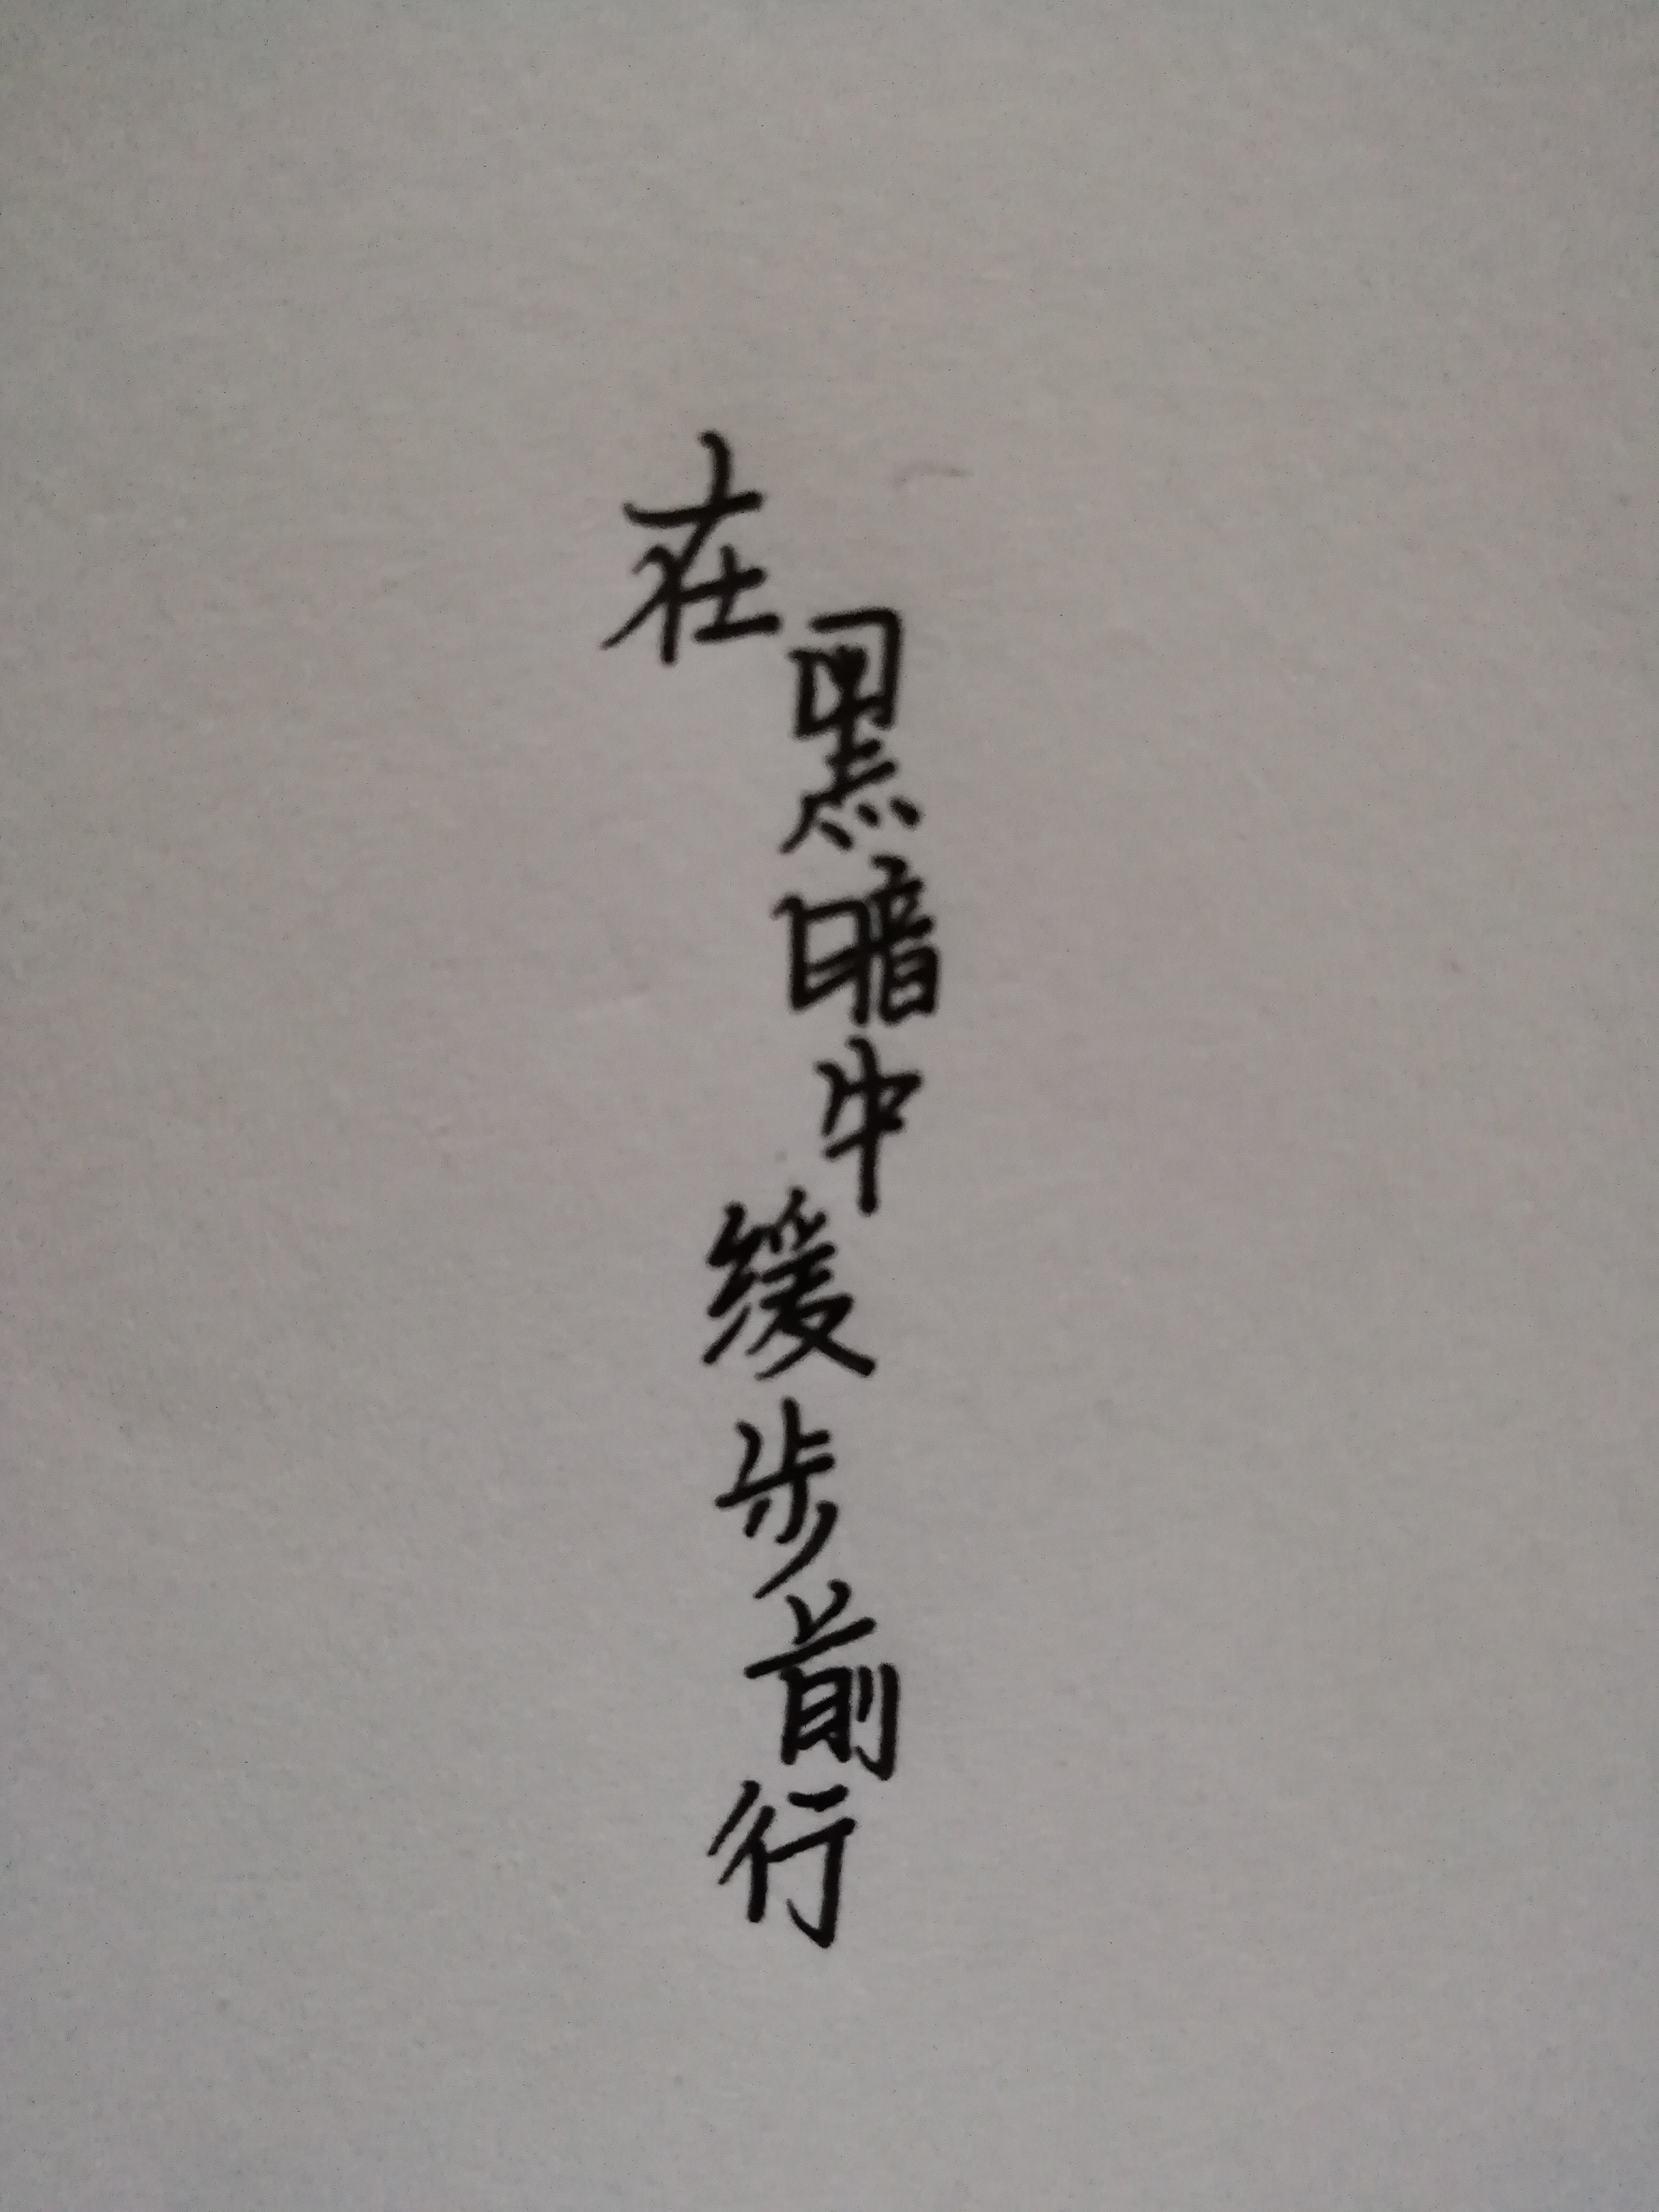 在黑暗中缓步前行